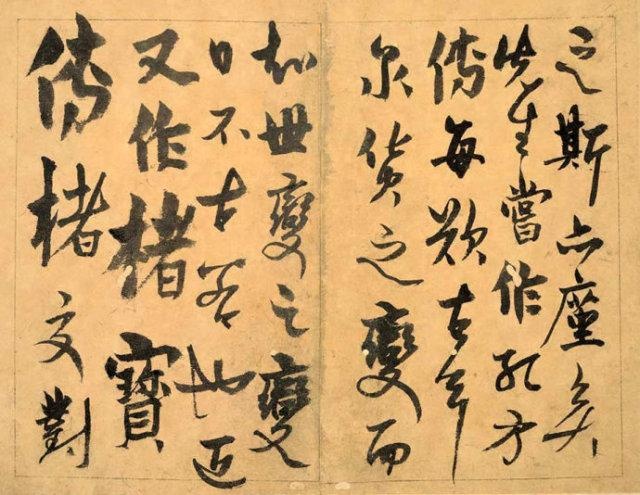 之斯亦座矣
先生嘗作孔方
傳每歎古今
泉貨之變而
知世變之變
日不古若也近
又作楮寶
傳楮文對